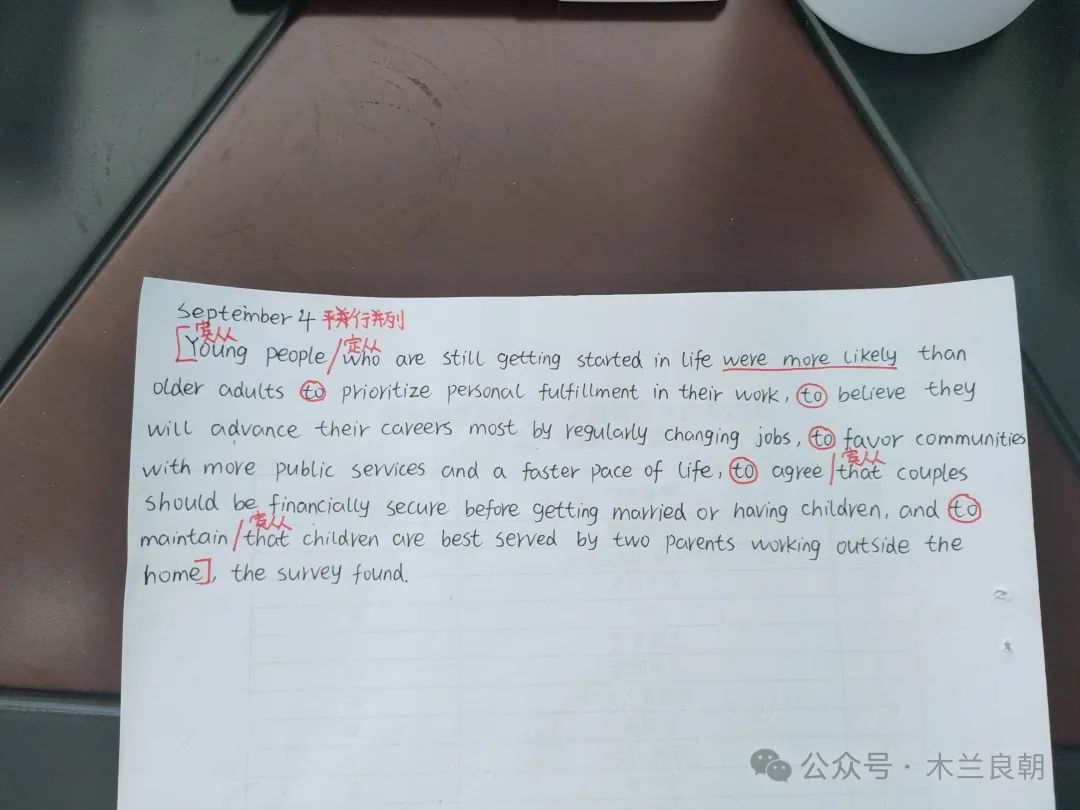 September 4 平行并列
宾从 定从
[Young people/who are still getting started in life were more likely than
older adults to prioritize personal fulfillment in their work, to believe they
will advance their careers most by regularly changing jobs, to favor communities
宾从
with more public services and a faster pace of life, to agree/that couples
should be financially secure before getting married or having children, and to
宾从
maintain/that children are best served by two parents working outside the
home], the survey found.
公众号·木兰良朝